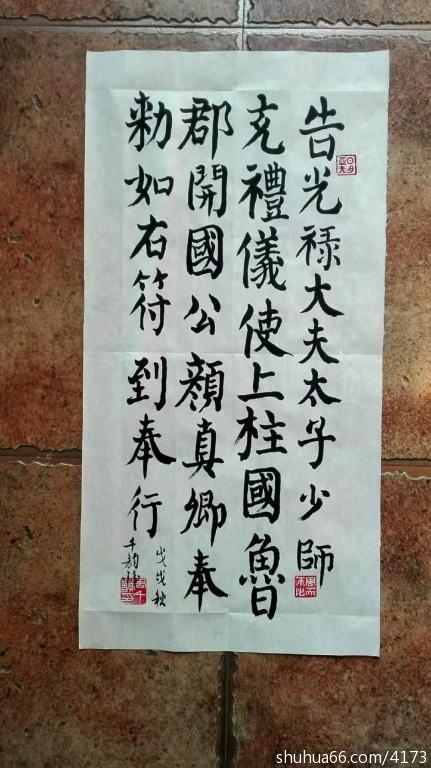 告光禄大夫太子少師
充禮儀使上柱國魯
郡開國公顔真卿奉
勑如右符到奉行
戊戌秋
千韵
shuhua66.com/4173